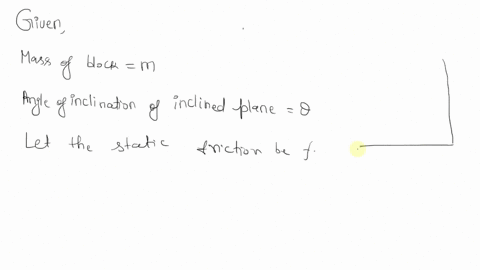 Given,
Mass of block = m
Angle of inclination of inclined plane = θ
Let the static friction be f.